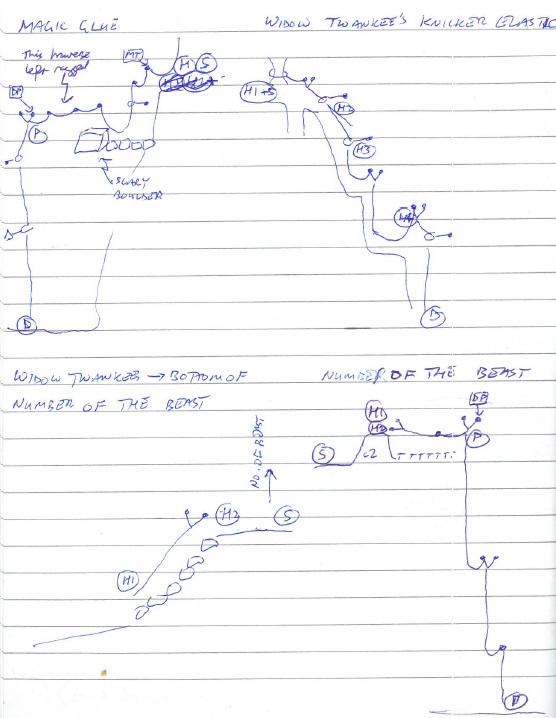 MAGIC GLUE
This traverse
left rigged
DP
MT
H
S
P
SCARY
BOULDER
D
D
WIDOW TWANKEE'S KNICKER ELASTIC
H1+S
H2
H3
H4
D
WIDOW TWANKEE → BOTTOM OF
NUMBER OF THE BEAST
NO. OF BEAST
H1
H2
S
NUMBER OF THE BEAST
DP
H1
H2
S
P
D